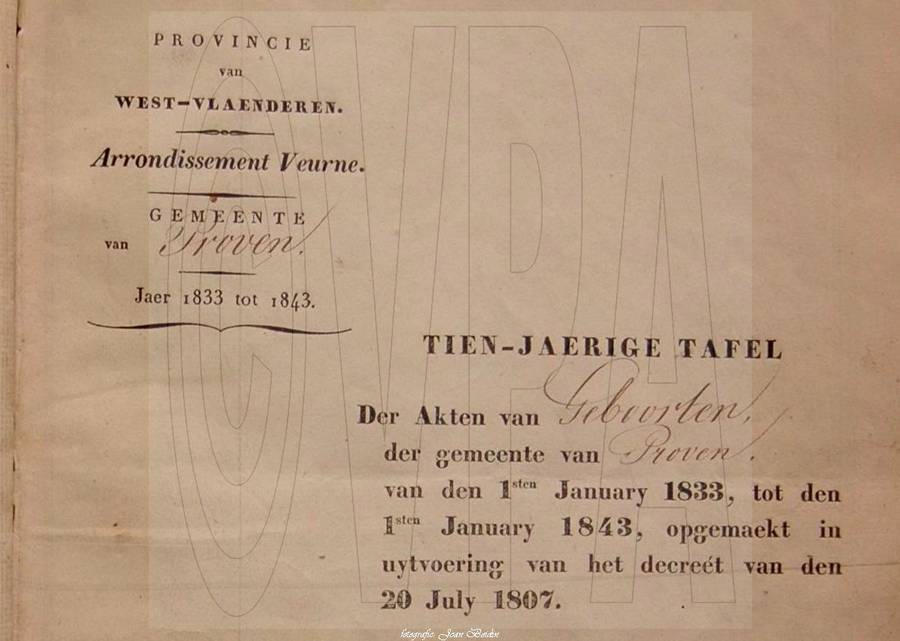 PROVINCIE
van
WEST-VLAENDEREN.
Arrondissement Veurne.
GEMEENTE
van Proven.
Jaer 1833 tot 1843.
TIEN-JAERIGE TAFEL
Der Akten van Geboorten,
der gemeente van Proven.
van den 1sten January 1833, tot den
1sten January 1843, opgemaekt in
uytvoering van het decreét van den
20 July 1807.
CVPA
fotografie Joan Boidin